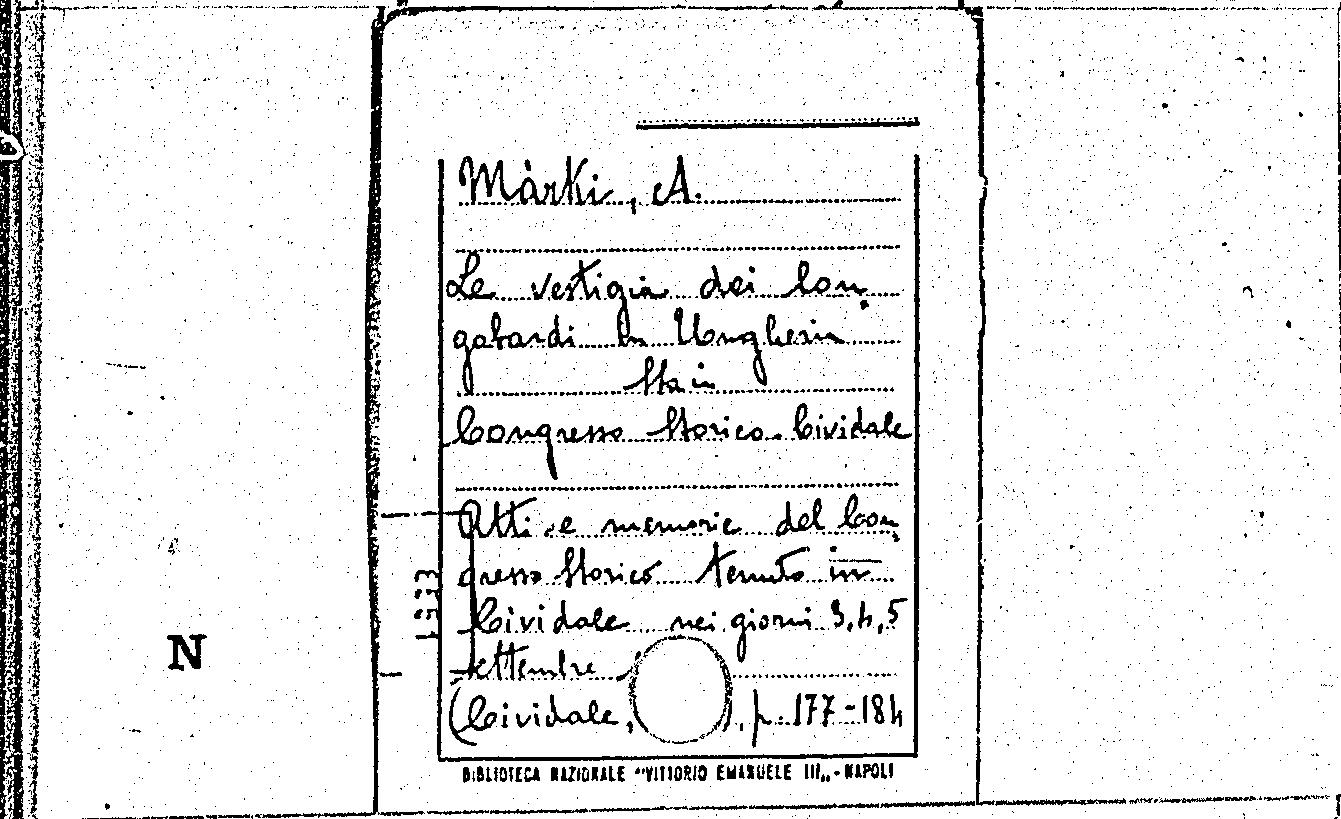 Màrki, A.
Le vestigia dei Lon,
gobardi in Ungheria
Sta in
Congresso Storico. Cividale
Atti e memorie del Con,
gresso Storico tenuto in
Cividale nei giorni 3, 4, 5
settembre
(Cividale, ), p. 177-184
N
BIBLIOTECA NAZIONALE "VITTORIO EMANUELE III„ - NAPOLI